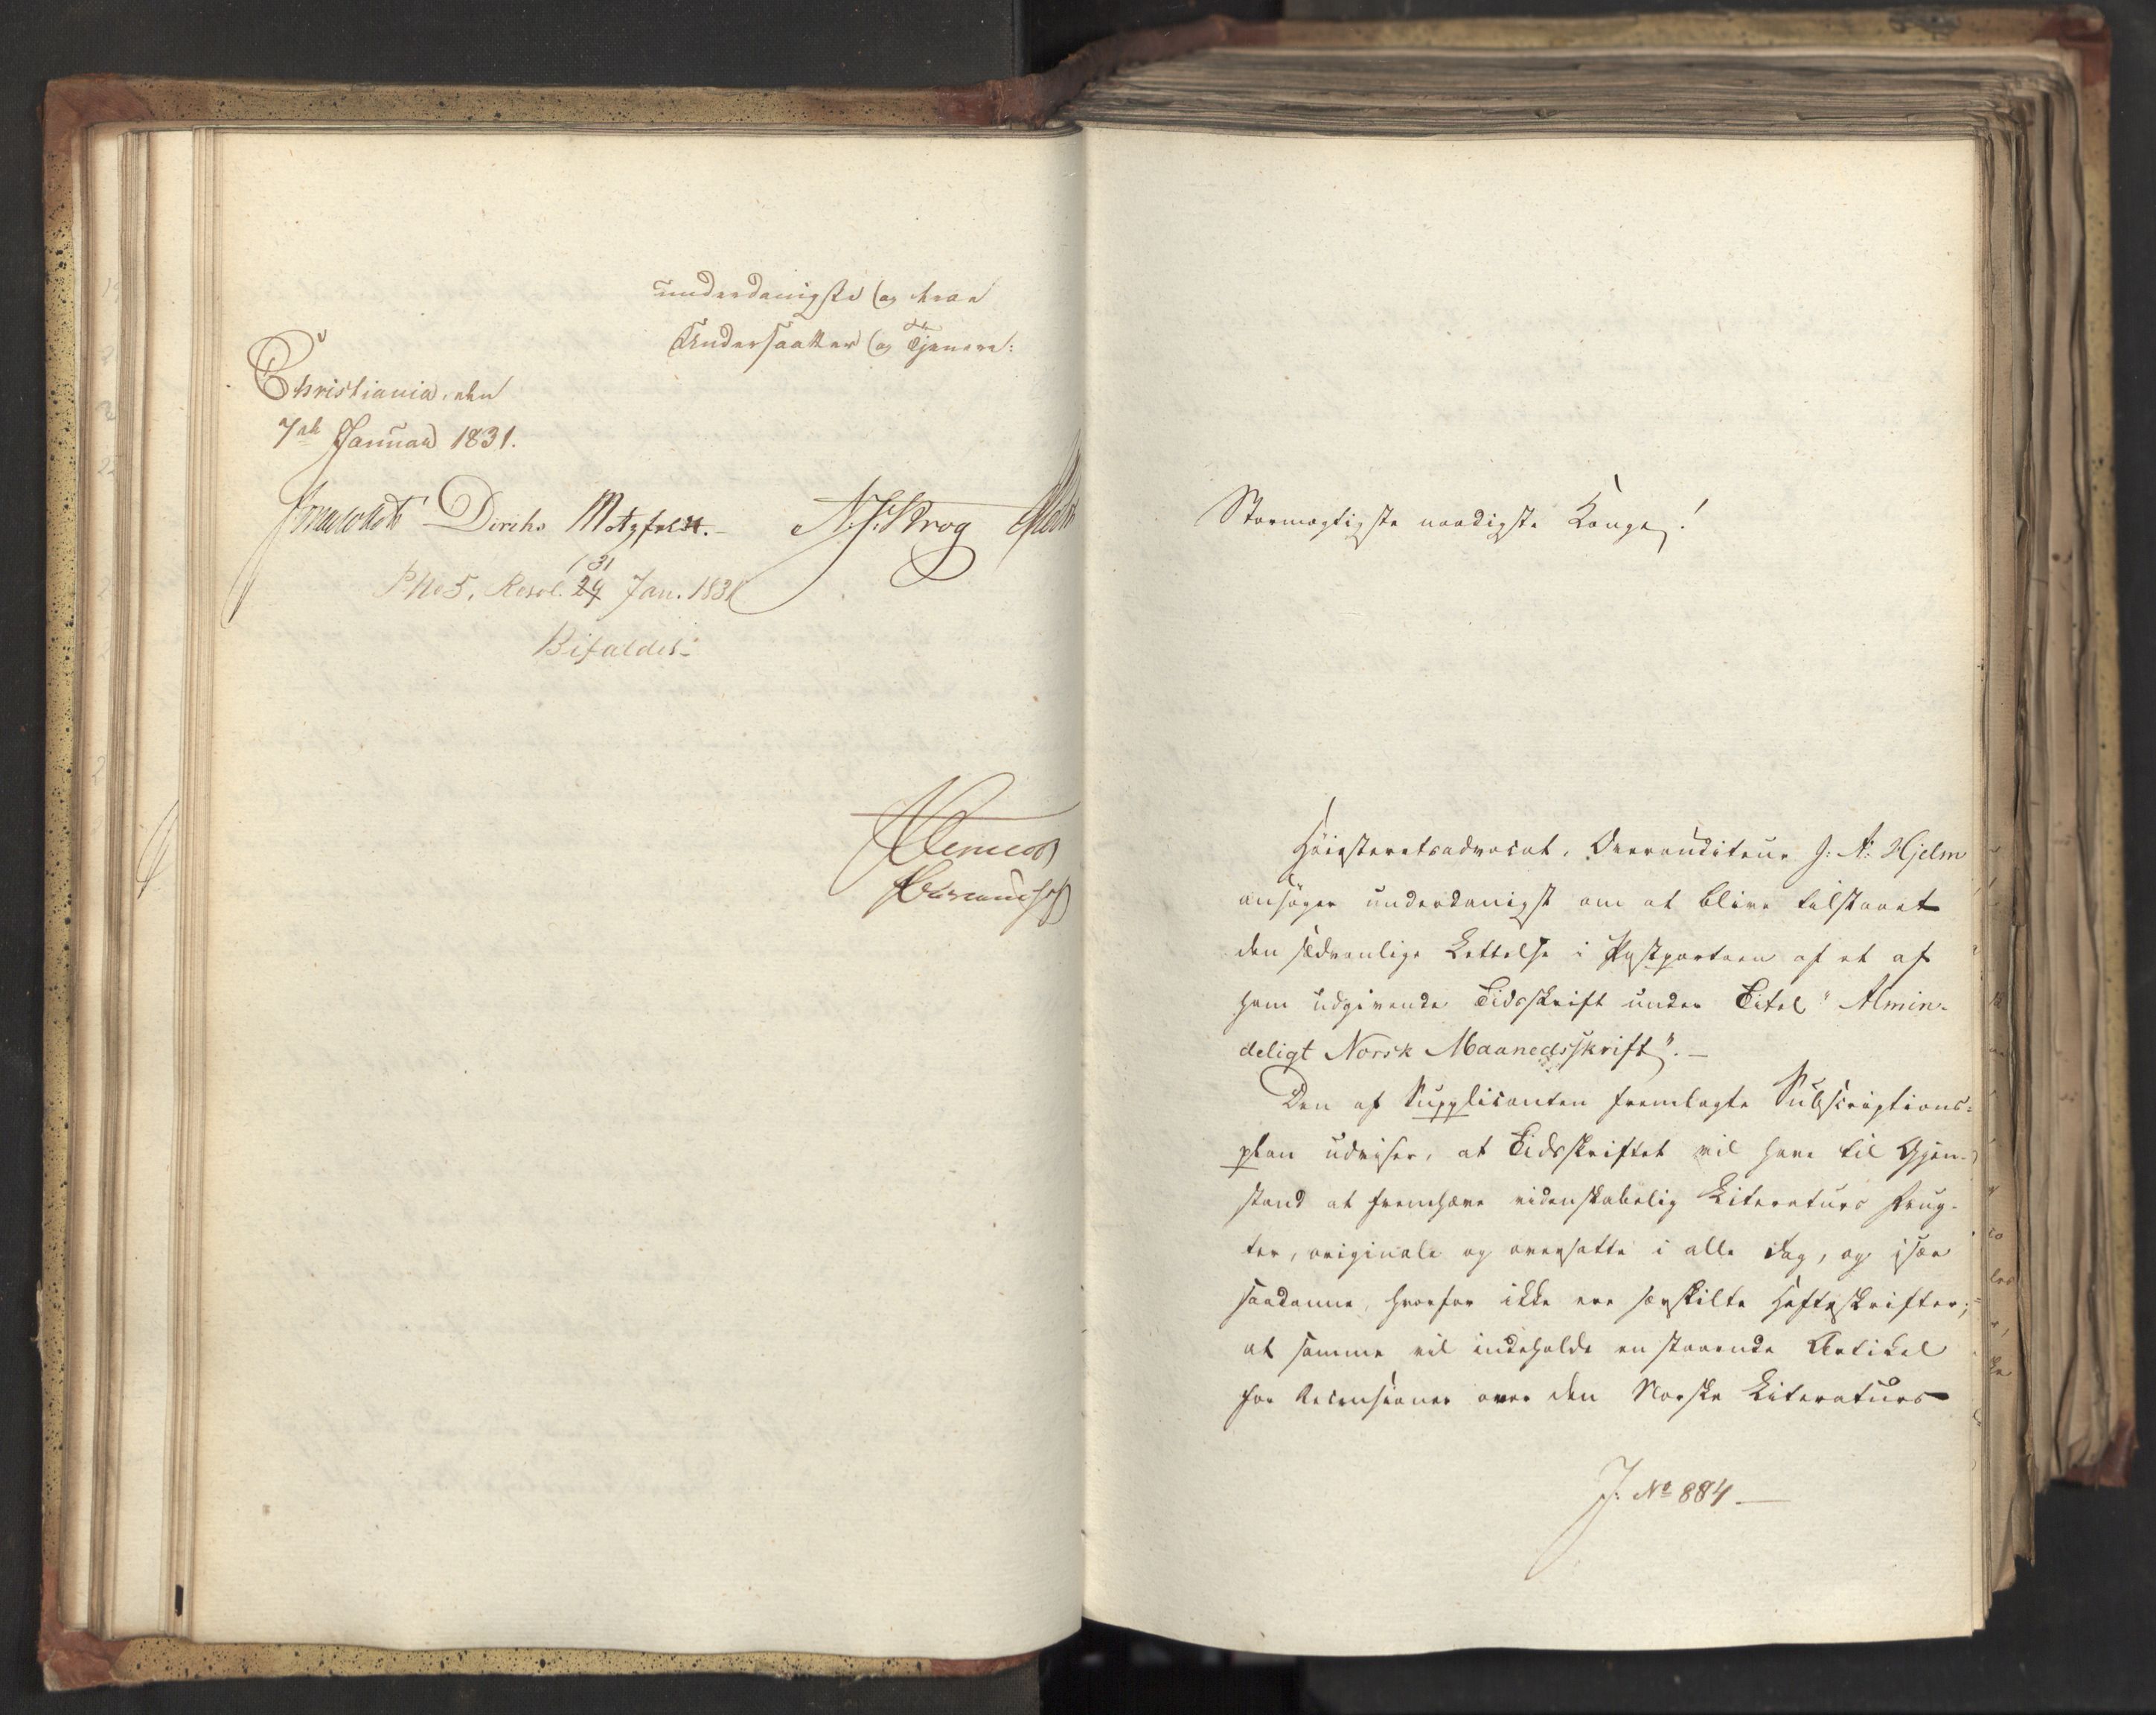 underdanigste og troe
Undersaatter og Tjenere:
Christiania, den
7de Januar 1831.
Diriks Motzfeldt. N. J. Krog
P No 5, Resol. 29 31 Jan. 1831
Bifaldet.
Stormægtigste naadigste Konge!
Høiesteretsadvocat, Overauditeur J: A: Hjelm
ansøger underdanigst om at blive tilstaaet
den sædvanlige Lettelse i Postportoen af et af
ham udgivende Tidsskrift under Titel "Almin-
deligt Norsk Maanedsskrift". —
Den af Supplicanten fremlagte Subscriptions-
plan udviser, at Tidsskriftet vil have til Gjen-
stand at fremhæve videnskabelig Literaturs Frug-
ter, originale og oversatte i alle Fag, og især
saadanne, hvorfor ikke ere særskilte Hefteskrifter;
at samme vil indeholde en staaende Artikel
for Recensioner over den Norske Literaturs
J: No 884 —